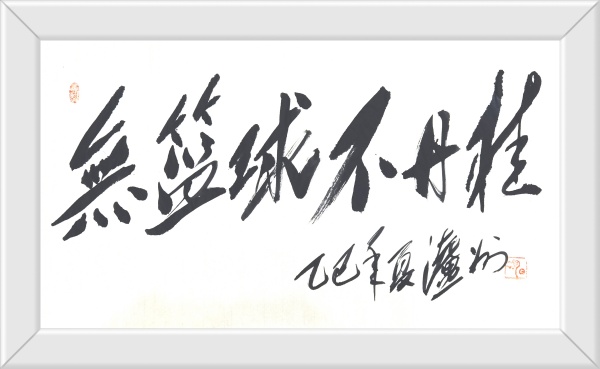 無籃球不丹桂
乙巳年夏瀘州